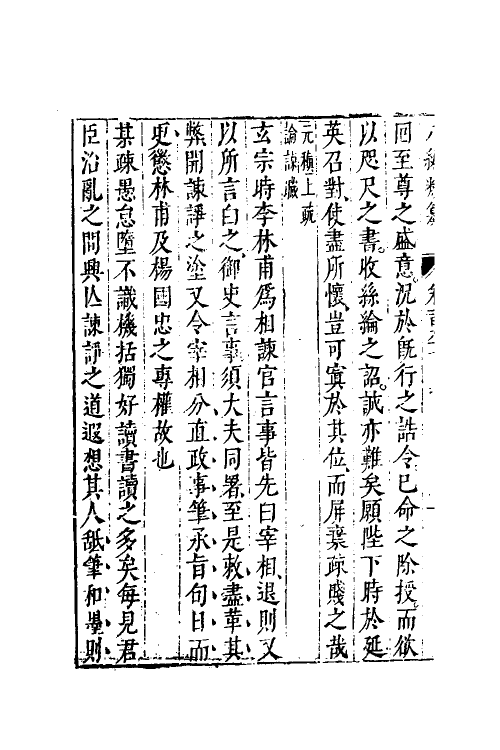 回至尊之盛意況於既行之誥令已命之除授而欲
以咫尺之書收絲綸之詔誠亦難矣願陛下時於延
英召對使盡所懷豈可寘於其位而屏棄疎賤之哉
元稹上疏
論諫職
玄宗時李林甫爲相諫官言事皆先曰宰相退則又
以所言白之御史言事須大夫同署至是敕盡革其
弊開諫諍之塗又令宰相分直政事筆承旨旬日而
更懲林甫及楊國忠之專權故也
某疎愚怠墮不識機括獨好讀書讀之多矣每見君
臣治亂之間興亾諫諍之道遐想其人舐筆和墨則